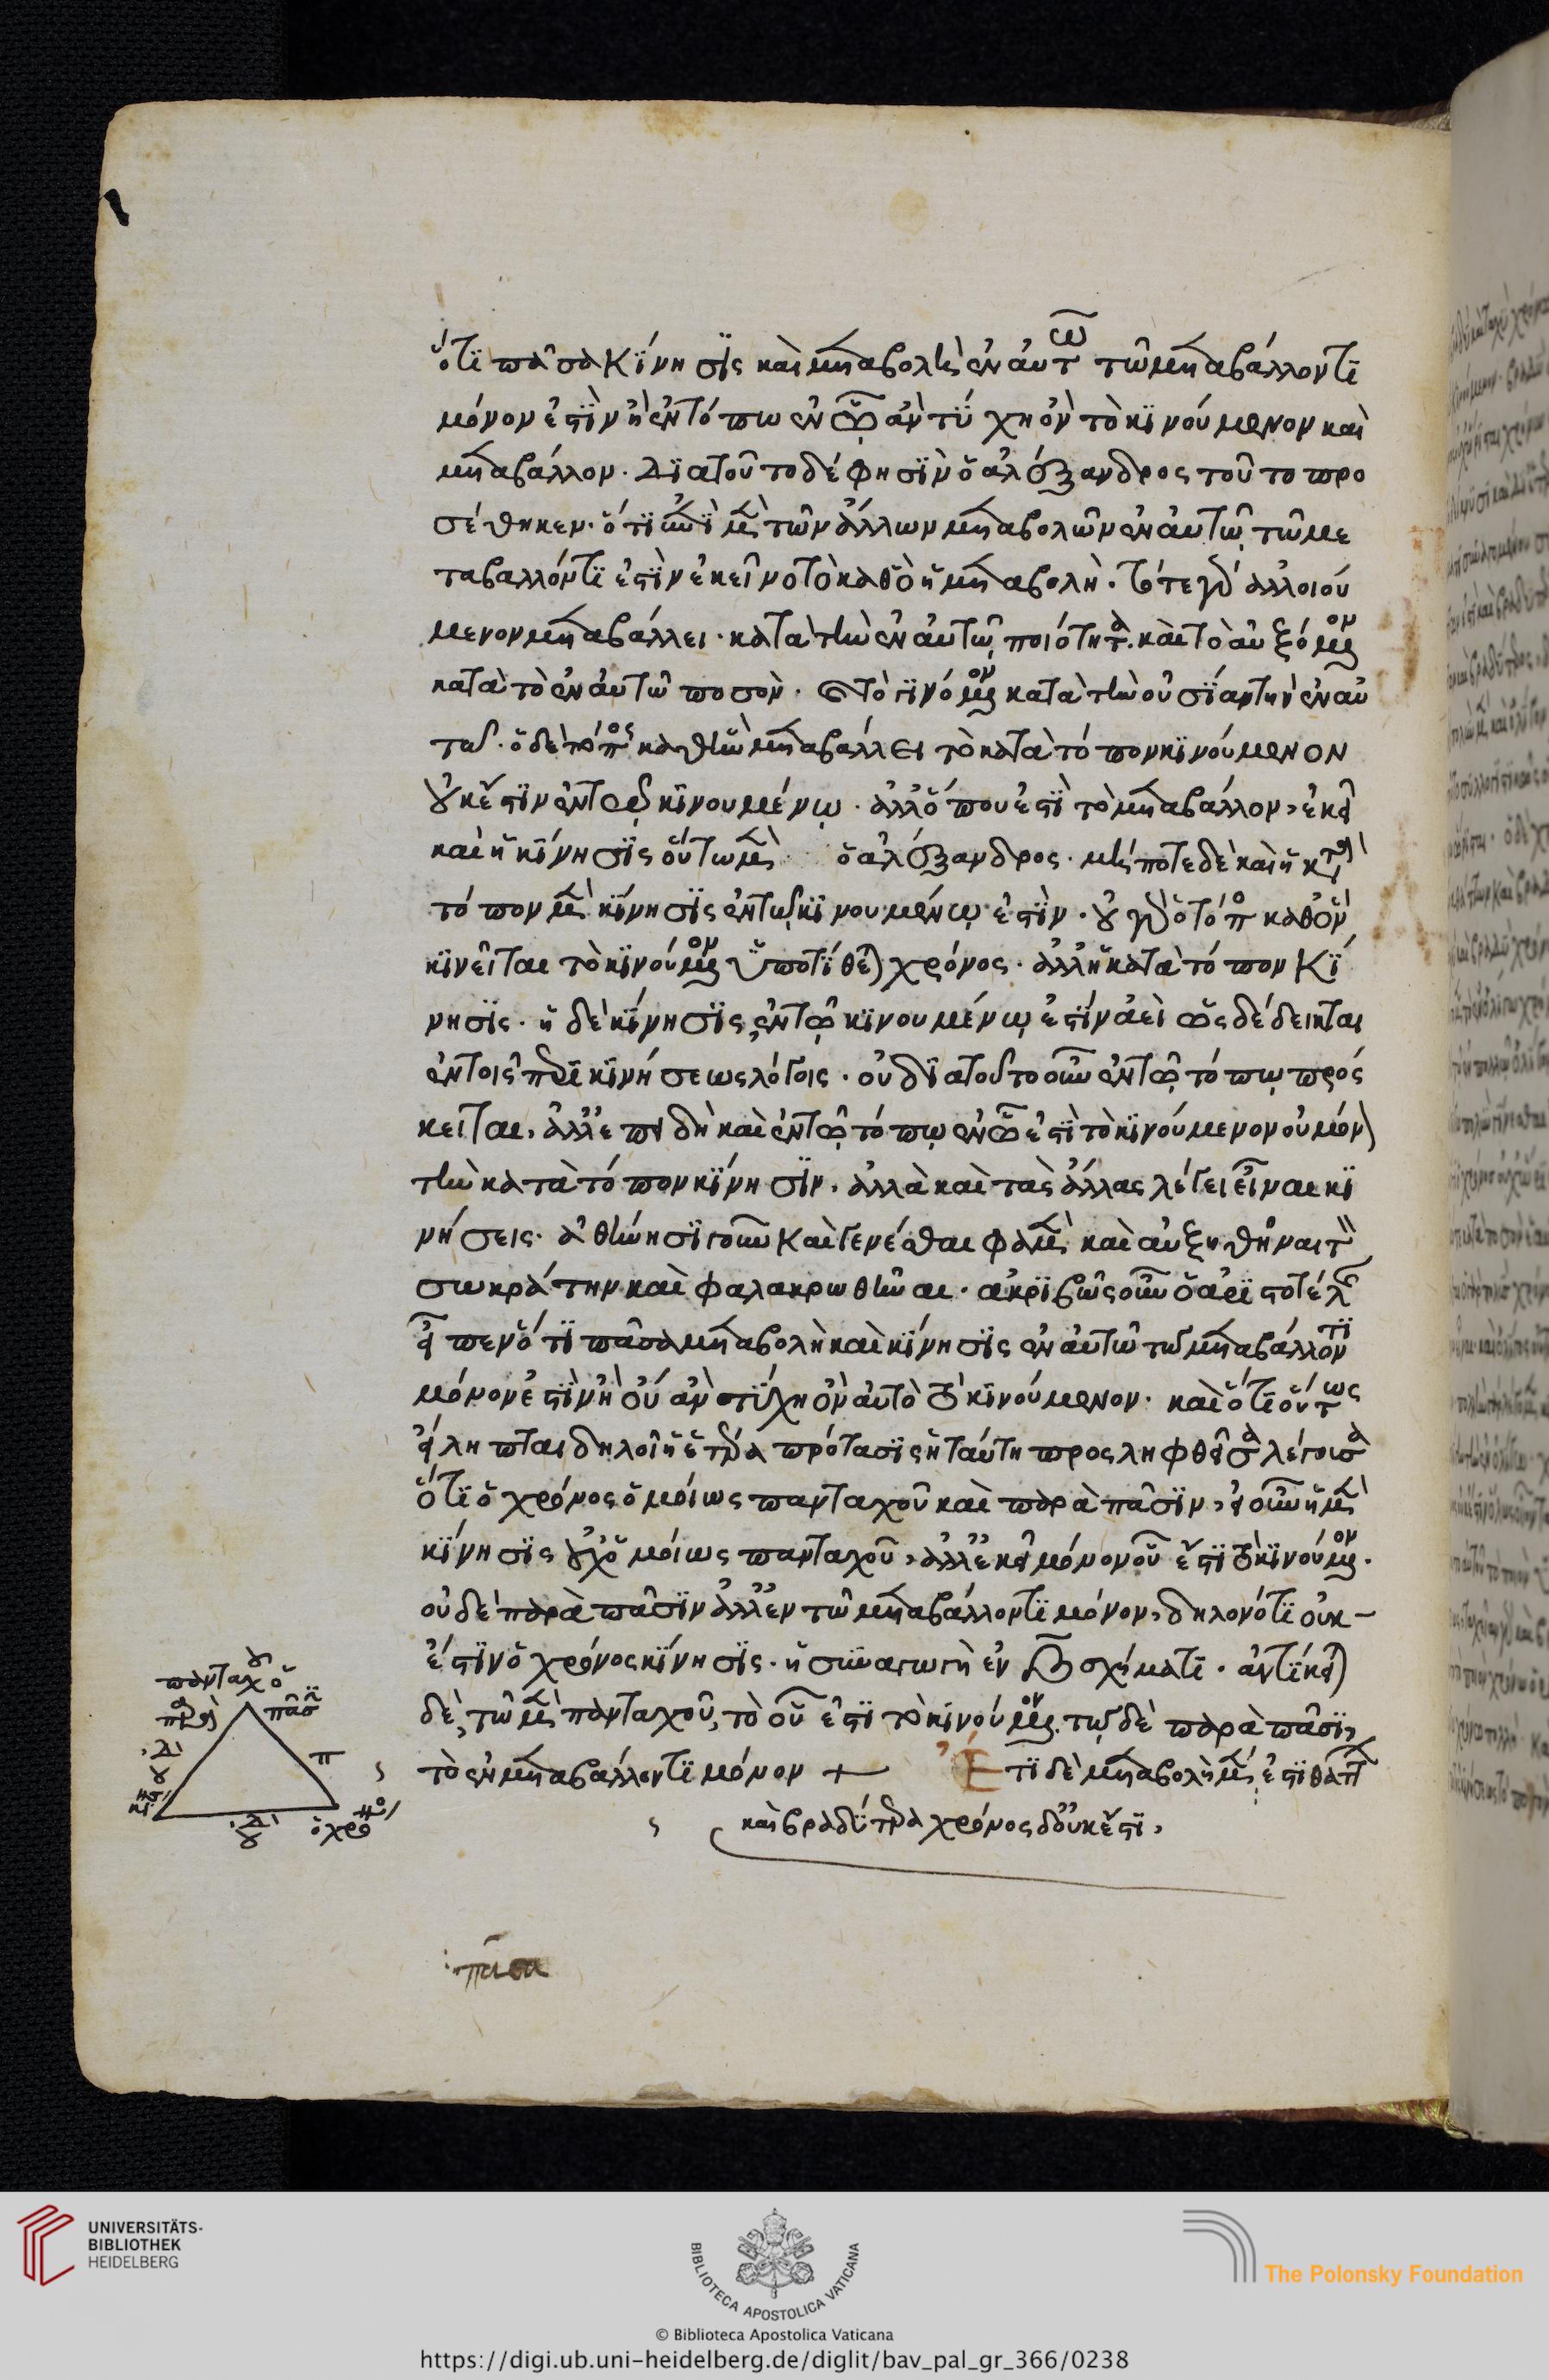 ὅτι πᾶσα κίνησις καὶ μεταβολὴ ἐν αὐτῶ τῶ μεταβάλλοντι
μόνον ἐστὶν ἢ ἐν τόπω ἐν ᾧ ἂν τύχη ὂν τὸ κινούμενον καὶ
μεταβάλλον. διατοῦτο δέ φησὶν ὁ ἀλέξανδρος τοῦτο προ
σέθηκεν. ὅτι ἐπὶ μὲν τῶν ἄλλων μεταβολῶν ἐν αὐτῷ τῶ με
ταβάλλοντι ἐστὶν ἐκεῖνο τὸ καθὸ ἡ μεταβολὴ. τό τε γὰρ ἀλλοιού
μενον μεταβάλλει. κατὰ τὴν ἐν αὐτῷ ποιότητα. καὶ τὸ αὐξόμενον
κατὰ τὸ ἐν αὐτῶ ποσὸν. καὶ τὸ γινόμενον κατὰ τὴν οὐσίαν τὴν ἐν αὐ
τῶ. ὁ δὲ τόπος καθ' ὃν μεταβάλλει τὸ κατὰ τόπον κινούμενον
οὐκ ἔστιν ἐν τῷ κινουμένῳ. ἀλλ' ὅπου ἐστὶ τὸ μεταβάλλον, ἐκεῖ
καὶ ἡ κίνησις οὕτω μὲν ὁ ἀλέξανδρος. μήποτε δὲ καὶ ἡ κατὰ
τόπον μὲν κίνησις ἐν τῷ κινουμένῳ ἐστὶν. οὐ γὰρ ὁ τόπος καθ' ὃν
κινεῖται τὸ κινούμενον ὑποτίθεται χρόνος. ἀλλ' ἡ κατὰ τόπον κί
νησις. ἡ δὲ κίνησις ἐν τῷ κινουμένῳ ἐστὶν ἀεὶ ὡς δέδεικται
ἐν τοῖς περὶ κινήσεως λόγοις. οὐ διατοῦτο οὖν ἐν τῷ τόπῳ πρός
κειται, ἀλλ' ἐπειδὴ καὶ ἐν τῷ τόπῳ ἐν ᾧ ἐστὶ τὸ κινούμενον οὐ μόνον
τὴν κατὰ τόπον κίνησιν. ἀλλὰ καὶ τὰς ἄλλας λέγει εἶναι κι
νήσεις. ἀθήνησι γοῦν καὶ γενέσθαι φαμὲν καὶ αὐξηθῆναι τὸν
σωκράτην καὶ φαλακρωθῆναι. ἀκριβῶς οὖν ὁ ἀριστοτέλης
εἶπεν ὅτι πᾶσα μεταβολὴ καὶ κίνησις ἐν αὐτῶ τῶ μεταβάλλοντι
μόνον ἐστὶν ἢ οὗ ἂν τύχη ὂν αὐτὸ τὸ κινούμενον. καὶ ὅτι οὕτως
εἴληπται δηλοῖ ἡ ἑτέρα πρότασις ἡ ταύτη προσληφθεῖσα λέγουσα
ὅτι ὁ χρόνος ὁμοίως πανταχοῦ καὶ παρὰ πᾶσιν, εἰ οὖν ἡ μὲν
κίνησις οὐχ' ὁμοίως πανταχοῦ, ἀλλ' ἐκεῖ μόνον οὗ ἔστι τὸ κινούμενον.
οὐδὲ παρὰ πᾶσιν ἀλλ' ἐν τῶ μεταβάλλοντι μόνον, δηλονότι οὐκ
ἔστιν ὁ χρόνος κίνησις. ἡ συναγωγὴ ἐν β σχήματι. ἀντίκειται
δὲ, τῶ μὲν πανταχοῦ, τὸ οὗ ἐστὶ τὸ κινούμενον. τῷ δὲ παρὰ πᾶσιν,
τὸ ἐν μεταβάλλοντι μόνον + Ἔτι δὲ μεταβολὴ μὲν ἐστι θάττων
καὶ βραδυτέρα χρόνος δ' οὐκ ἔστι,
πανταχοῦ ὁ
παρὰ πᾶσι
ὁ χρόνος
πᾶσα
UNIVERSITÄTS-
BIBLIOTHEK
HEIDELBERG
BIBLIOTECA APOSTOLICA VATICANA
The Polonsky Foundation
© Biblioteca Apostolica Vaticana
https://digi.ub.uni-heidelberg.de/diglit/bav_pal_gr_366/0238